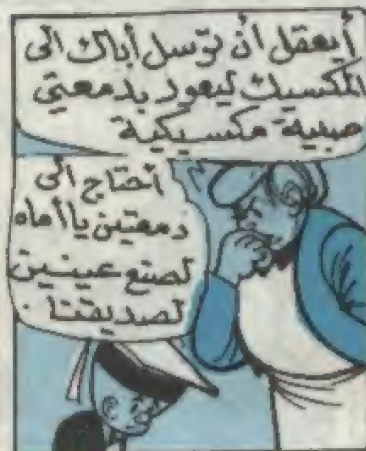 أيعقل أن ترسل أباك الى
المكسيك ليعود بدمعتي
صبية مكسيكية
أحتاج الى
دمعتين يا أماه
لصنع عينين
لصديقتنا.